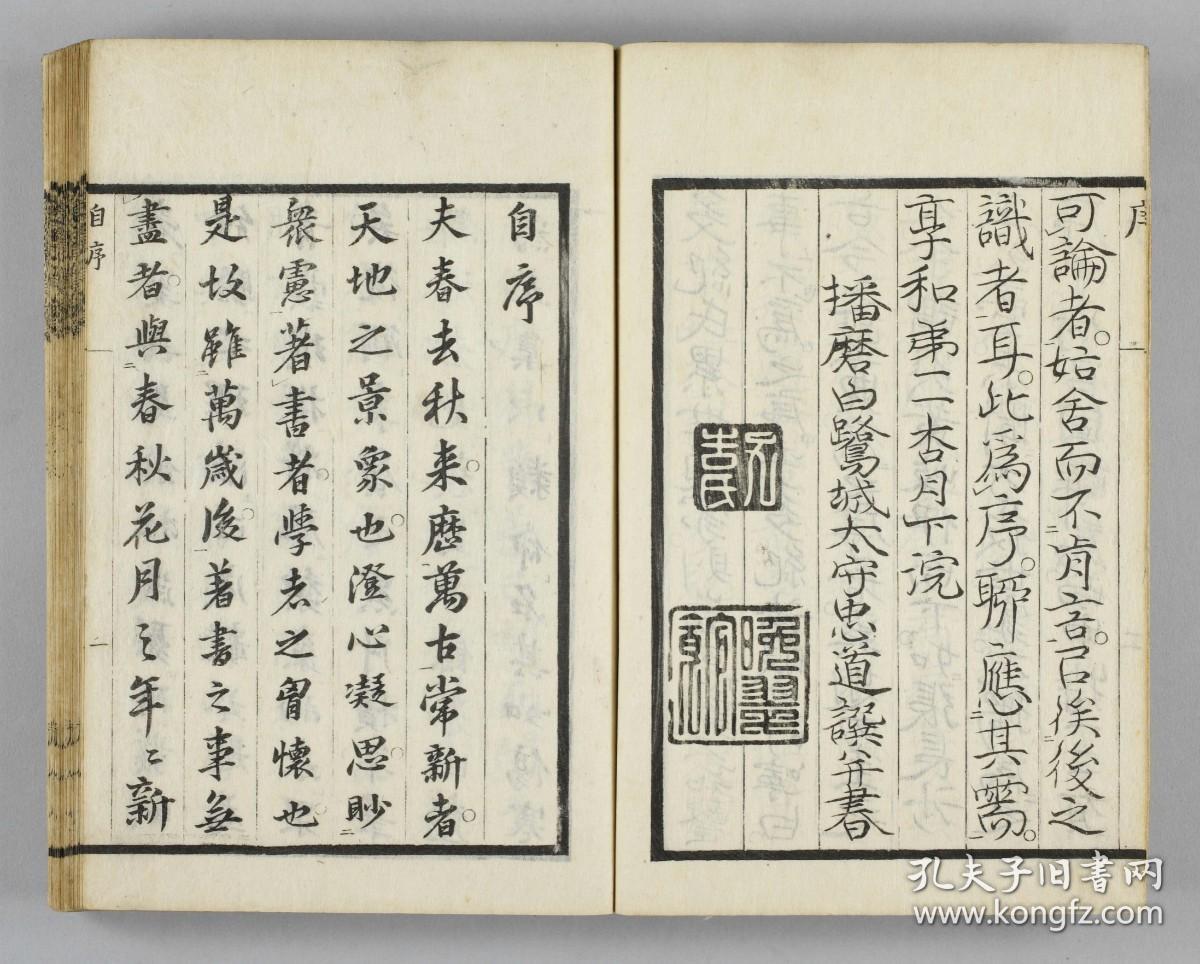 序
可論者。始舍而不肯言。以俟後之
識者耳。此爲序。聊應其需。
享和第二杏月下浣
播磨白鷺城太守忠道譔并書
自序
夫春去秋来。歷萬古常新者。
天地之景象也。澄心凝思。眇
衆慮著書者。學者之胷懷也。
是故雖萬歲後。著書之事無
盡者。與春秋花月之年〻新
自序
孔夫子旧书网
www.kongfz.com